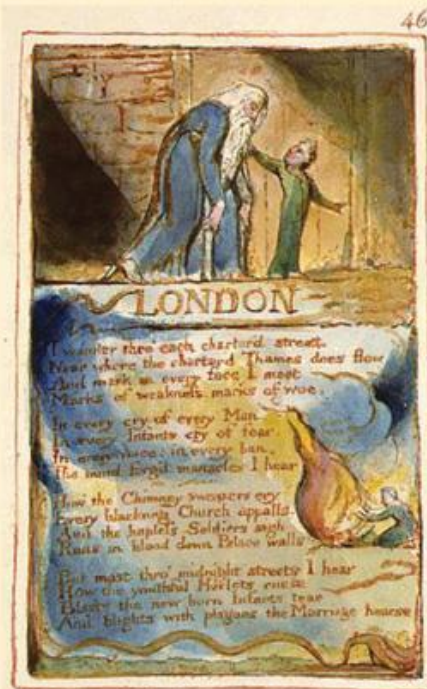 46
LONDON
I wander thro' each charter'd street,
Near where the charter'd Thames does flow
And mark in every face I meet
Marks of weakness, marks of woe.
In every cry of every Man
In every Infants cry of fear
In every voice: in every ban,
The mind-forg'd manacles I hear
How the Chimney sweepers cry
Every blackning Church appalls,
And the hapless Soldiers sigh
Runs in blood down Palace walls
But most thro' midnight streets I hear
How the youthful Harlots curse
Blasts the new born Infants tear
And blights with plagues the Marriage hearse